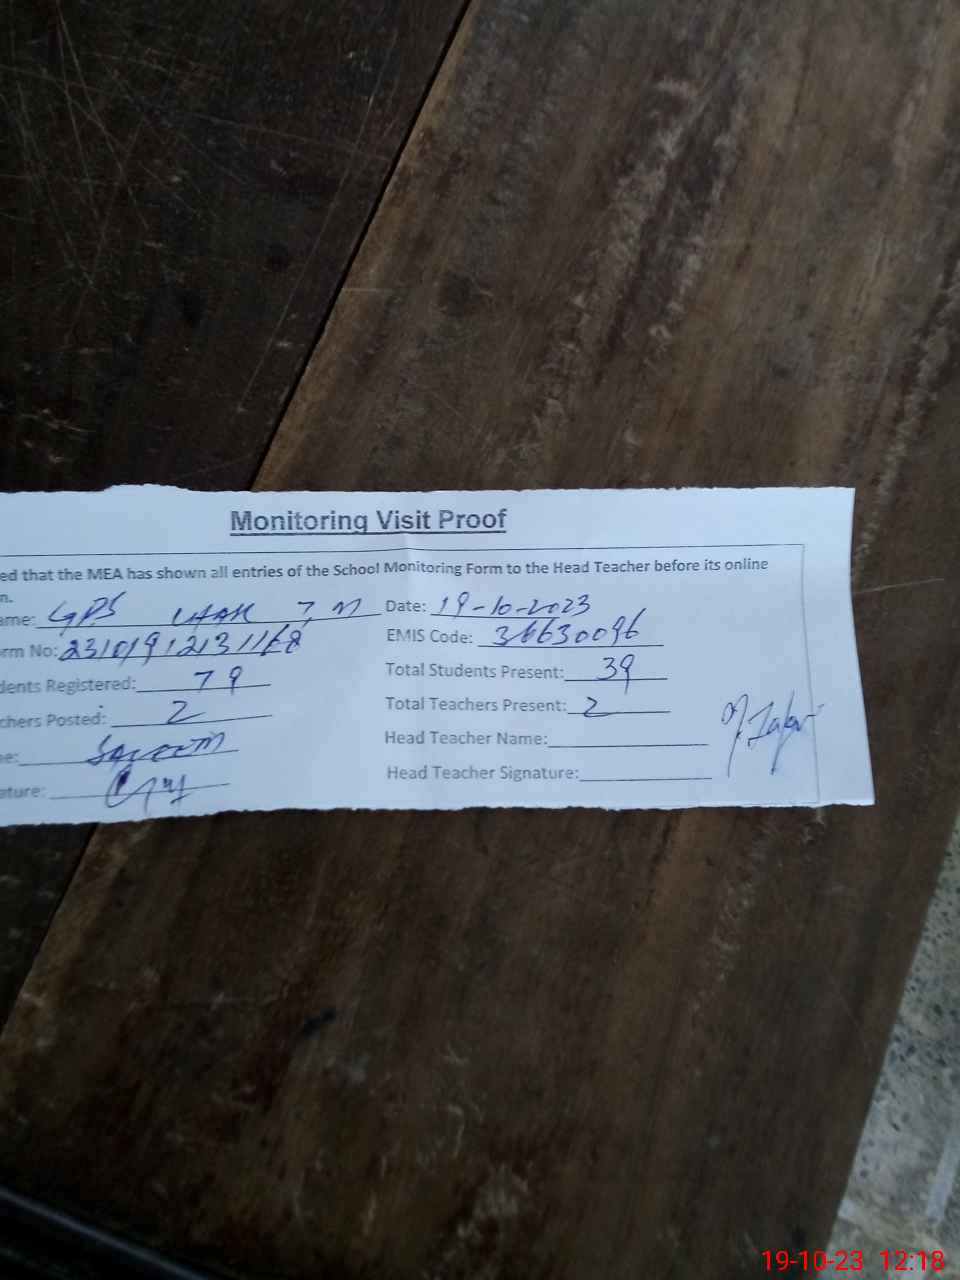 Monitoring Visit Proof
ed that the MEA has shown all entries of the School Monitoring Form to the Head Teacher before its online
n.
ame: GPS 7, M Date: 19-10-2023
rm No: 23101912131168 EMIS Code: 36630096
dents Registered: 79 Total Students Present: 39
chers Posted: 2 Total Teachers Present: 2
e: Head Teacher Name:
ature: Head Teacher Signature:
19-10-23 12:18